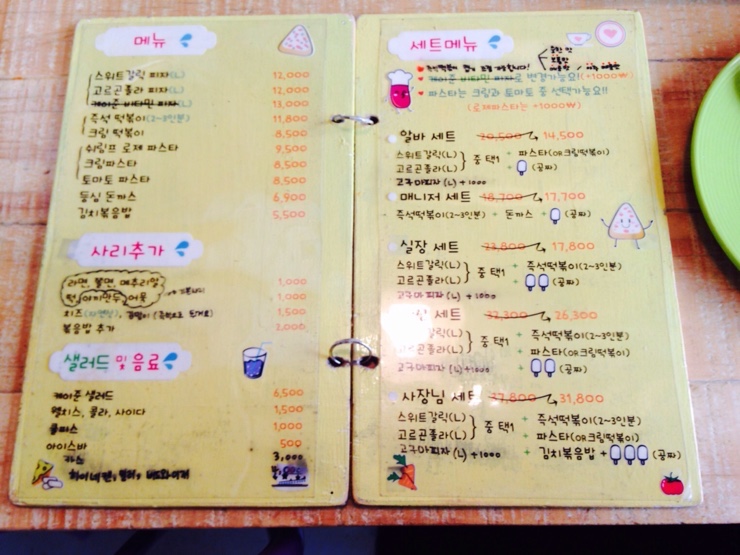 메뉴
스위트갈릭 피자(L) 12,000
고르곤졸라 피자(L) 12,000
케이준 비타민 피자(L) 13,000
즉석 떡볶이(2~3인분) 11,800
크림 떡볶이 8,500
쉬림프 로제 파스타 9,500
크림파스타 8,500
토마토 파스타 8,500
등심 돈까스 6,900
김치볶음밥 5,500
사리추가
라면, 쫄면, 메추리알 1,000
떡, 야끼만두, 어묵 1,000
치즈 1,500
볶음밥 추가 2,000
샐러드 및 음료
케이준 샐러드 6,500
웰치스, 콜라, 사이다 1,500
쿨피스 1,000
아이스바 500
카스 3,000
하이네켄,
세트메뉴
순한 맛
케이준 비타민 피자로 변경가능요! (+1000₩)
파스타는 크림과 토마토 중 선택가능요!!
(로제파스타는 +1000₩)
알바 세트 20,500 14,500
스위트갈릭(L) 고르곤졸라(L) 중 택1 + 파스타(OR크림떡볶이) + (공짜)
고구마피자(L) +1000
매니저 세트 18,700 17,700
즉석떡볶이(2~3인분) + 돈까스 + (공짜)
실장 세트 23,800 17,800
스위트갈릭(L) 고르곤졸라(L) 중 택1 + 즉석떡볶이(2~3인분) + (공짜)
고구마피자(L) +1000
세트 32,300 26,300
갈릭(L) 곤졸라(L) 중 택1 + 즉석떡볶이(2~3인분) + 파스타(OR크림떡볶이)
고구마피자(L) +1000 + (공짜)
사장님 세트 37,800 31,800
스위트갈릭(L) 고르곤졸라(L) 중 택1 + 즉석떡볶이(2~3인분) + 파스타(OR크림떡볶이)
고구마피자(L) +1000 + 김치볶음밥 + (공짜)